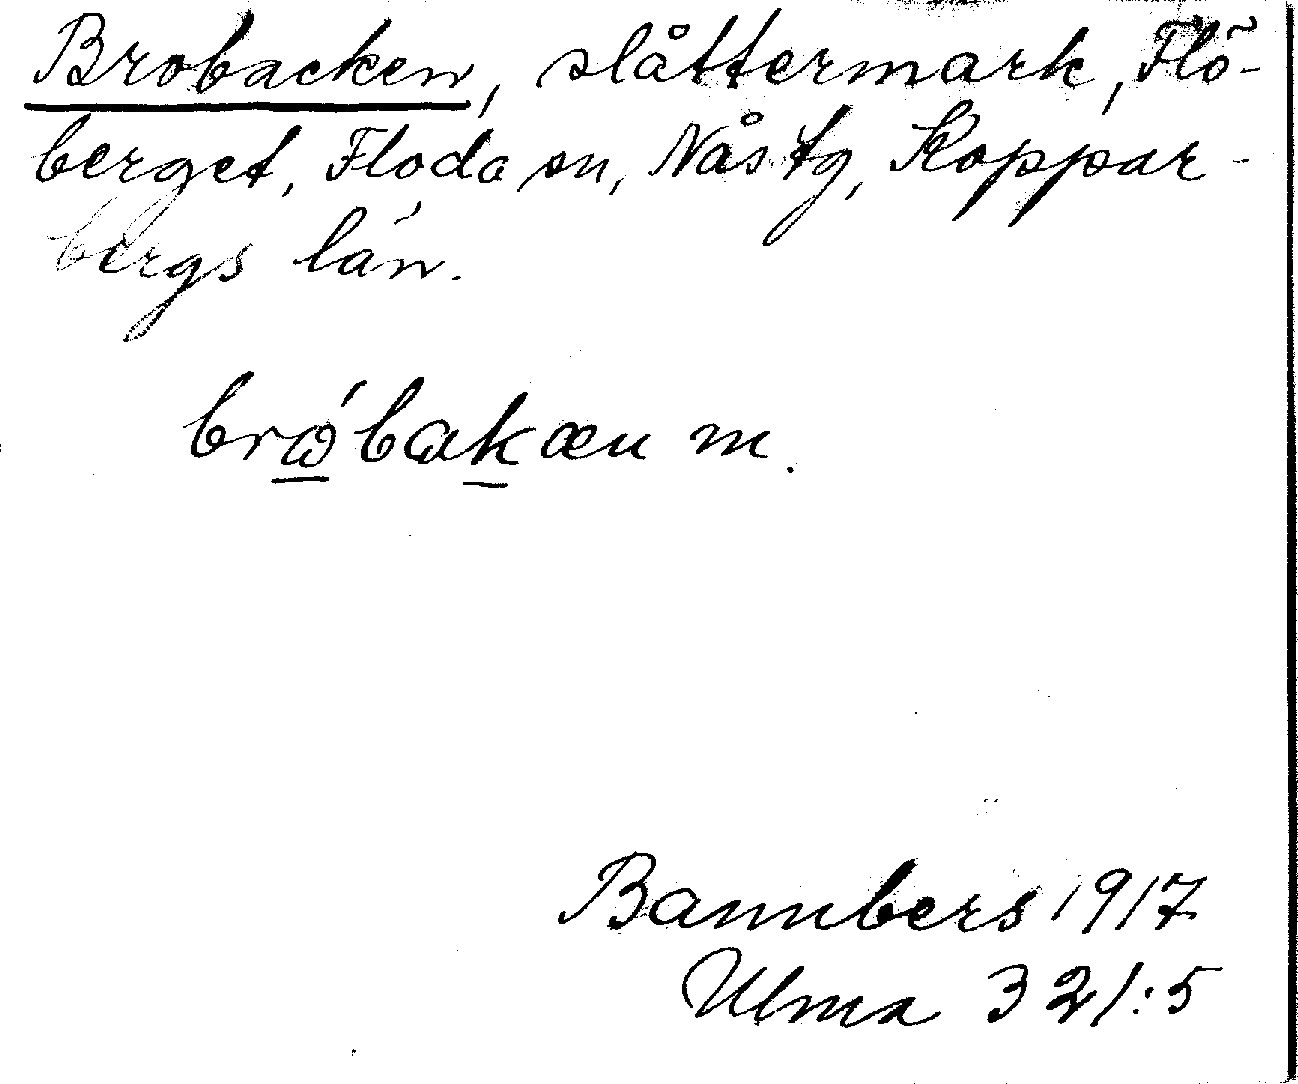 Brobacken, slåttermark, Flö-
berget, Floda sn, Nås tg, Koppar-
bergs län.
brώ̲bak̲æn m.
Bannbers 1917
Ulma 321:5